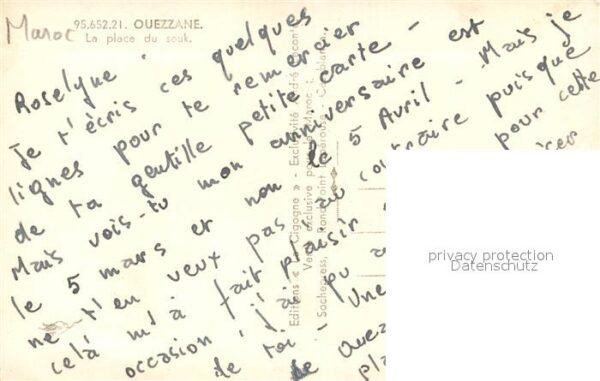 Maroc
95.652.21. OUEZZANE.
La place du souk.
Roselyne
je t'écris ces quelques
lignes pour te remercier
de ta gentille petite carte -
Mais vois-tu mon anniversaire est
le 5 mars et non le 5 Avril - Mais je
ne t'en veux pas au contraire puisque
celà m'a fait plaisir pour cette
occasion j'ai pu
de toi - Une
de Ouez
Editions « Cigogne » - Exclusivité
Vente exclusive pour le Maroc :
Sochepress, Rond-Point - Casablanca
privacy protection
Datenschutz